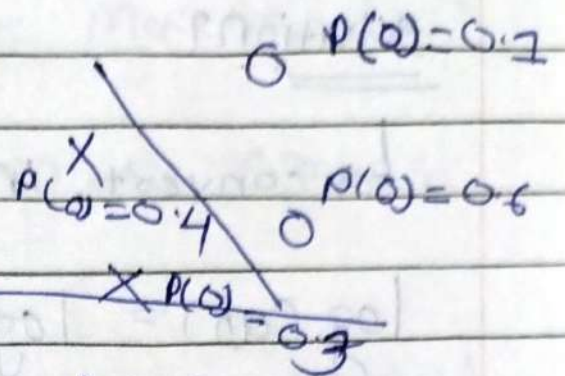 O P(0)=0.7
X
P(0)=0.4
O P(0)=0.6
X P(0)
= 0.3